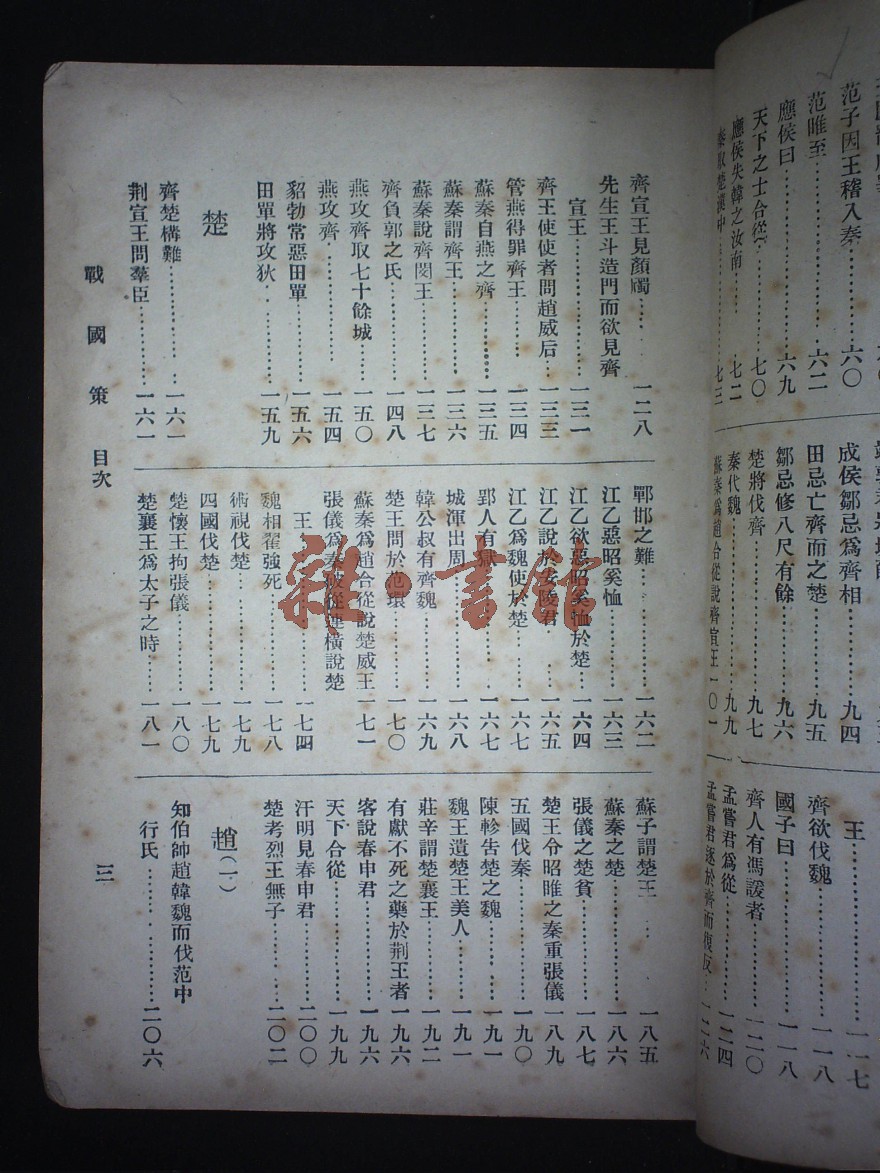 范子因王稽入秦⋯⋯六〇
范雎至⋯⋯六二
應侯曰⋯⋯六九
天下之士合從⋯⋯七〇
應侯失韓之汝南⋯⋯七二
秦取楚漢中⋯⋯七三
成侯鄒忌爲齊相⋯⋯九四
田忌亡齊而之楚⋯⋯九五
鄒忌修八尺有餘⋯⋯九六
楚將伐齊⋯⋯九七
秦伐魏⋯⋯九九
蘇秦爲趙合從說齊宣王一〇一
王⋯⋯一一七
齊欲伐魏⋯⋯一一八
國子曰⋯⋯一一八
齊人有馮諼者⋯⋯一二〇
孟嘗君爲從⋯⋯一二四
孟嘗君逐於齊而復反⋯⋯一二六
齊宣王見顏斶⋯⋯一二八
先生王斗造門而欲見齊
宣王⋯⋯一三一
齊王使使者問趙威后⋯⋯一三三
管燕得罪齊王⋯⋯一三四
蘇秦自燕之齊⋯⋯一三五
蘇秦謂齊王⋯⋯一三六
蘇秦說齊閔王⋯⋯一三七
齊負郭之民⋯⋯一四八
燕攻齊取七十餘城⋯⋯一五〇
燕攻齊⋯⋯一五四
貂勃常惡田單⋯⋯一五六
田單將攻狄⋯⋯一五九
楚
齊楚構難⋯⋯一六一
荆宣王問羣臣⋯⋯一六一
鄲邯之難⋯⋯一六二
江乙惡昭奚恤⋯⋯一六三
江乙欲惡昭奚恤於楚⋯⋯一六四
江乙說於安陵君⋯⋯一六五
江乙爲魏使於楚⋯⋯一六七
郢人有獄⋯⋯一六七
城渾出周⋯⋯一六八
韓公叔有齊魏⋯⋯一六九
楚王問於范環⋯⋯一七〇
蘇秦爲趙合從說楚威王⋯⋯一七一
張儀爲秦破從連橫說楚
王⋯⋯一七四
魏相翟強死⋯⋯一七八
術視伐楚⋯⋯一七九
四國伐楚⋯⋯一七九
楚懷王拘張儀⋯⋯一八〇
楚襄王爲太子之時⋯⋯一八一
蘇子謂楚王⋯⋯一八五
蘇秦之楚⋯⋯一八六
張儀之楚貧⋯⋯一八七
楚王令昭睢之秦重張儀一八九
五國伐秦⋯⋯一九〇
陳軫告楚之魏⋯⋯一九一
魏王遺楚王美人⋯⋯一九一
莊辛謂楚襄王⋯⋯一九二
有獻不死之藥於荆王者一九六
客說春申君⋯⋯一九六
天下合從⋯⋯一九九
汗明見春申君⋯⋯二〇〇
楚考烈王無子⋯⋯二〇二
趙(一)
知伯帥趙韓魏而伐范中
行氏⋯⋯二〇六
戰國策 目次
三